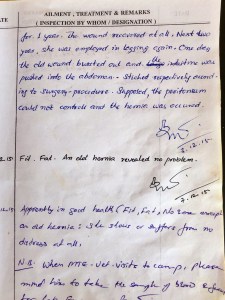 ATE
AILMENT, TREATMENT & REMARKS
(INSPECTION BY WHOM / DESIGNATION)
for 1 year. The wound recovered at all. Next two
year, she was employed in logging again. One day
the old wound bursted out and the intestine was
pushed into the abdomen. Stiched respectively accord-
ing to surgery-procedure. Supposed, the peritoneum
could not controls and the hernia was occured.
2.12.15
.15. Fit. Fat. An old hernia revealed no problem.
2.12.15
.15 Apparently in good health (Fit, Fat, No
an old hernia: She stays or suffers from no
distress at all,
N.B. When MTE-Vet. visits to camp, please
mind him to take the sample of blood
for